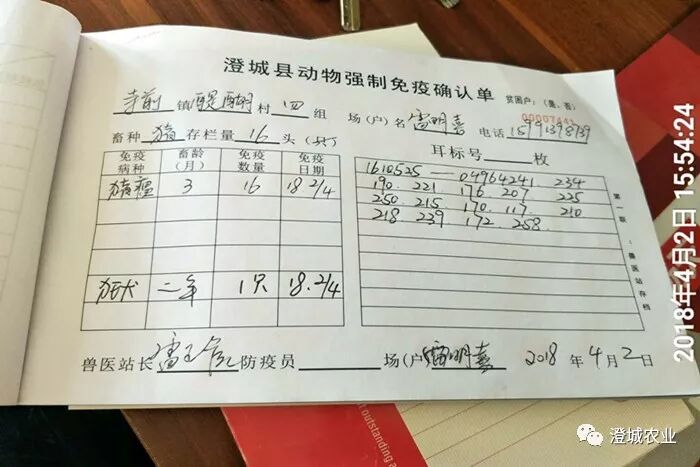 澄城县动物强制免疫确认单 贫困户：（是、否）
00007441
寺前镇醍醐村四组 场(户)名雷明喜 电话
畜种 猪 存栏量 16 头（只） 耳标号 枚
免疫病种 畜龄（月） 免疫数量 免疫日期
猪瘟 3 16 18 2/4
狂犬 二年 1只 18.2/4
1610525——04964241 234
190. 221 176 207 225
250 215 170 117 210
218 239 172 258
第一联：兽医站存档
兽医站长 防疫员 场(户)雷明喜 2018年4月2日
2018年4月2日 15:54:24
outstanding
澄城农业